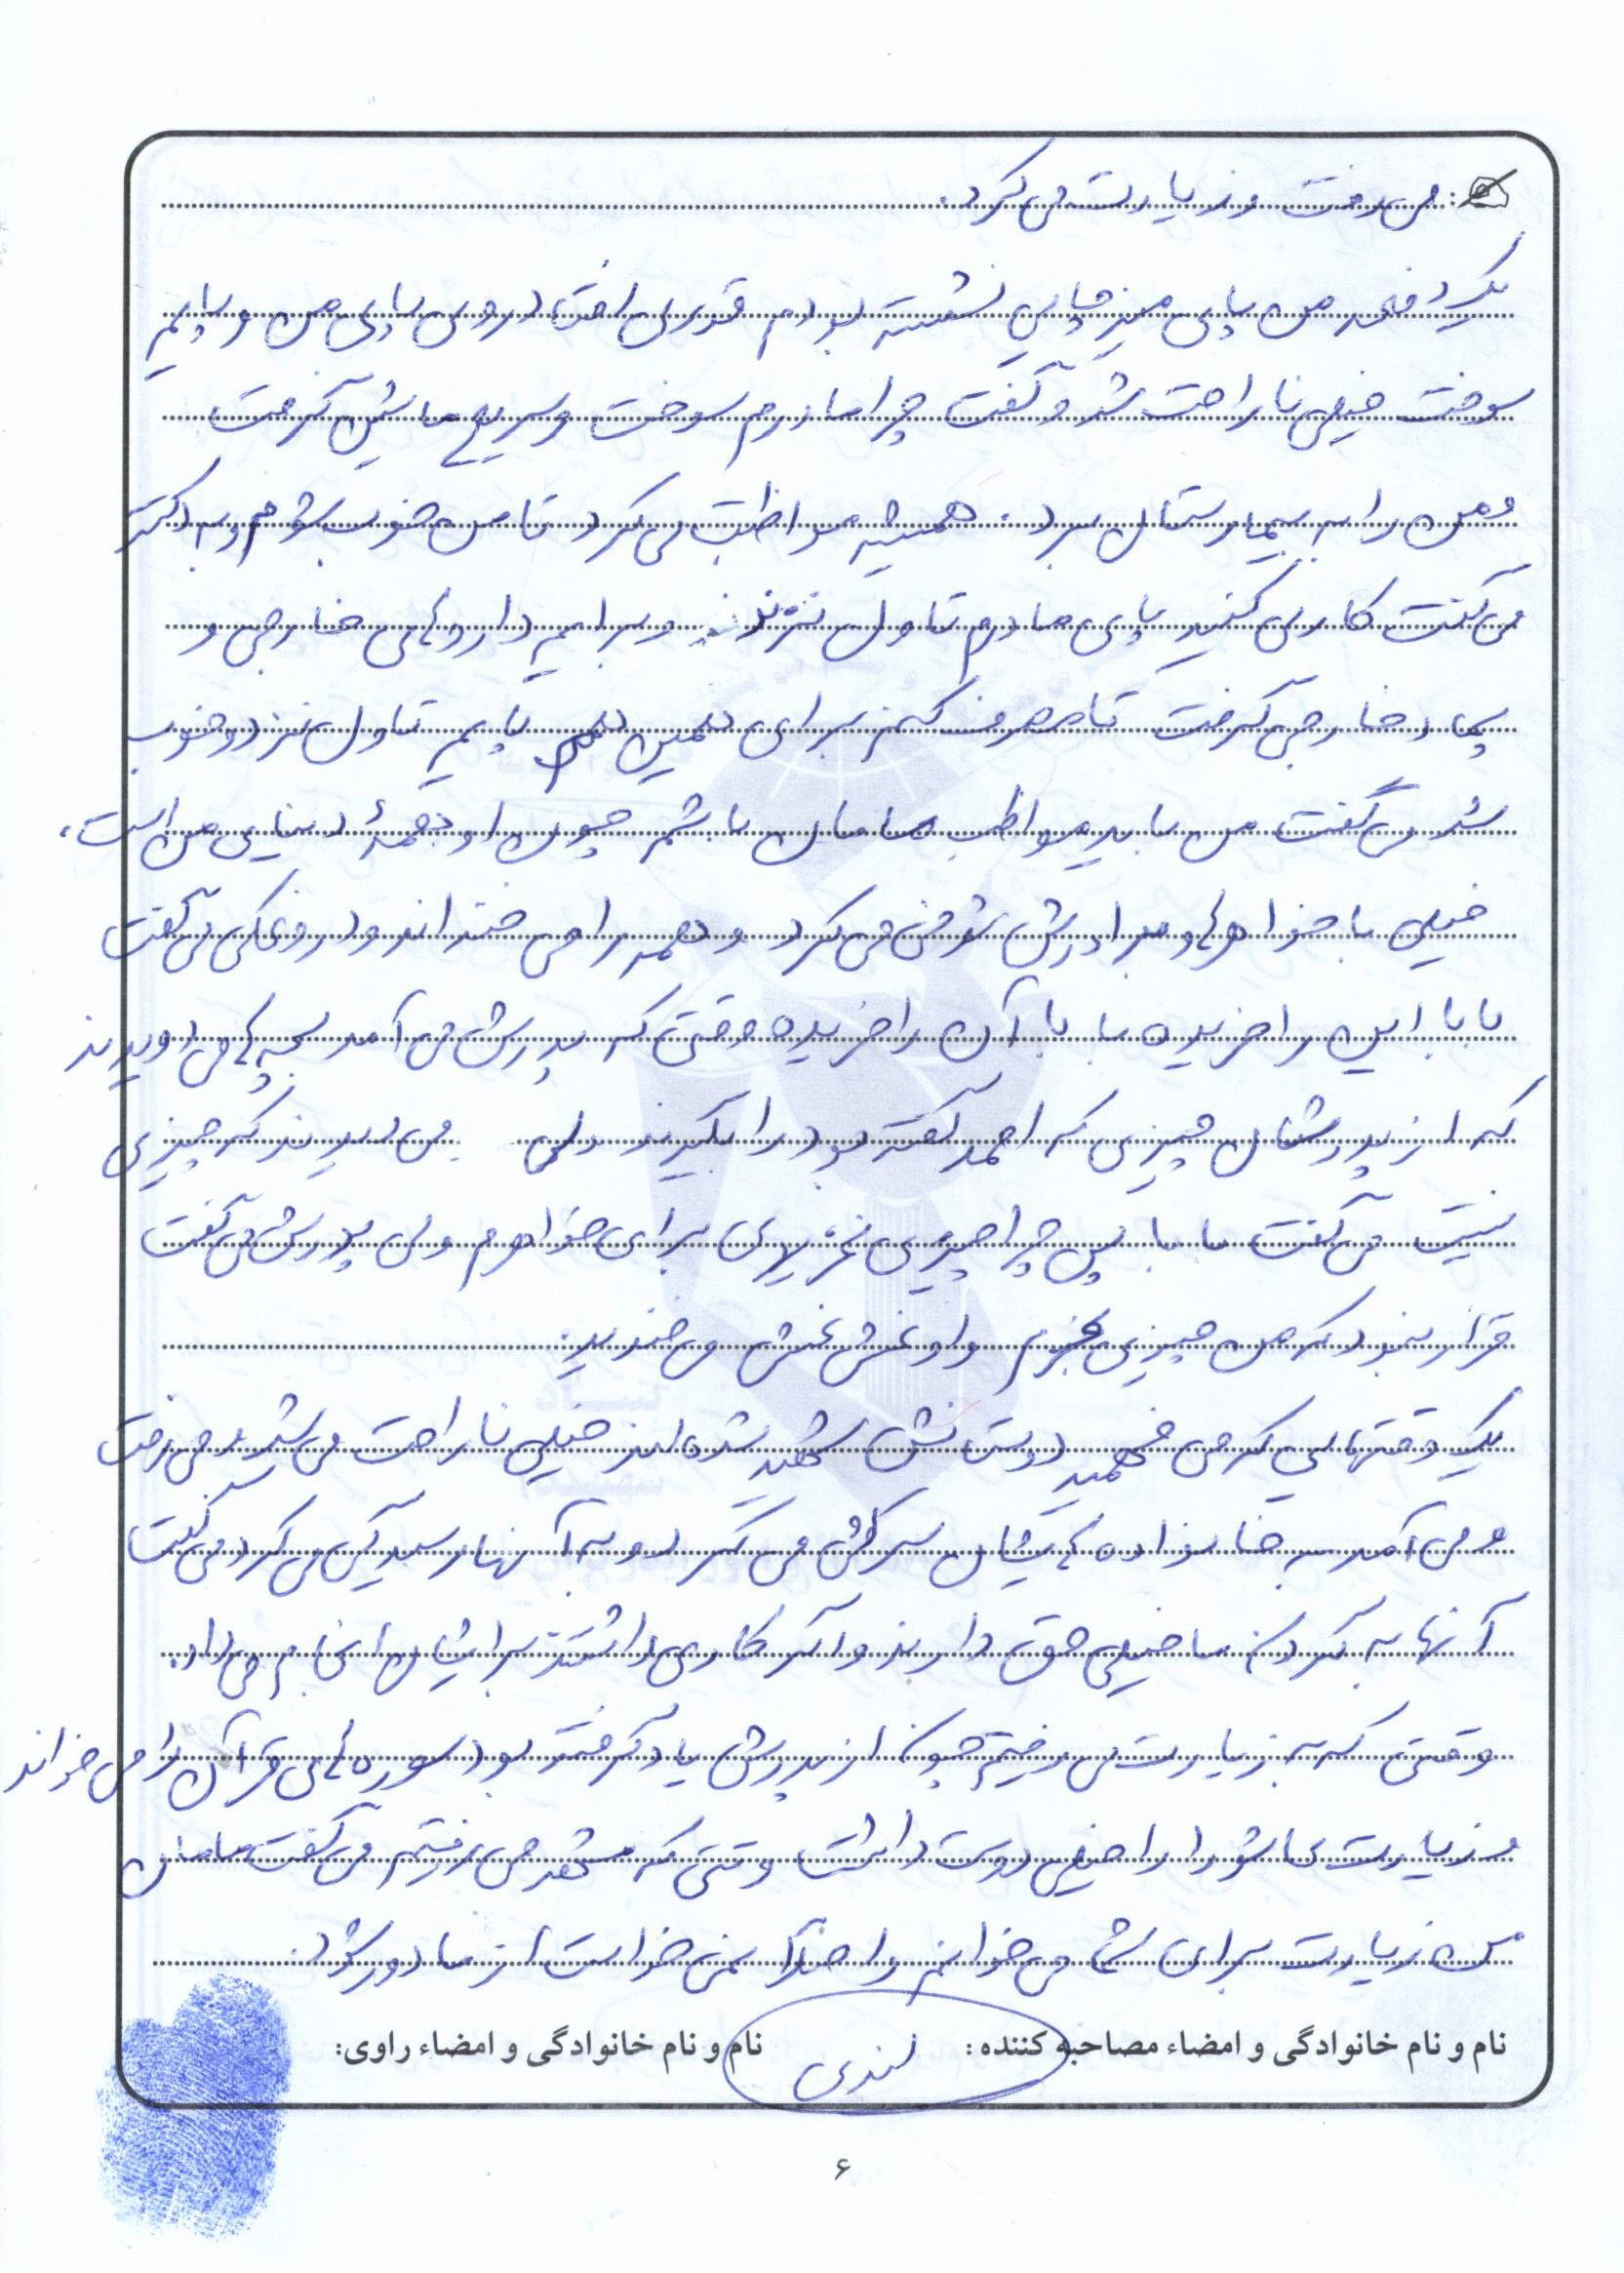 می رفت و زیارت می کرد.
یک دفعه من پای میز چایی نشسته بودم قوری افتاد روی پای من و پایم
سوخت خیلی ناراحت شد و گفت چرا مادرم سوخت و سریع ماشین گرفت
و من را به بیمارستان برد. همیشه مواظبت می کرد تا من خوب بشوم و به دکتر
می گفت کاری کنید پای مادرم تاول نزند و برایم داروهای خارجی و
پماد خارجی گرفت تا مصرف کنم برای همین هم پایم تاول نزد و خوب
شد می گفت من باید مواظب مامان باشم چون او همهٔ دنیای من است.
خیلی با خواهرها و برادرش شوخی می کرد و همه را می خنداند و دروغکی می گفت
بابا این را خریده بابا آن را خریده وقتی که پدرش می آمد بچه ها می دویدند
که از پدرشان چیزی که احمد گفته بود را بگیرند ولی می دیدند که چیزی
نیست می گفت بابا پس چرا چیزی نخریدی برای خواهرم ولی پدرش می گفت
قرار نبود که من چیزی بخرم و او غش غش می خندید.
یک وقتهایی که می فهمید دوستانش شهید شده اند خیلی ناراحت می شد و می رفت
و می آمد به خانواده هایشان سرکشی می کرد و به آنها رسیدگی می کرد می گفت
آنها به گردن ما خیلی حق دارند و اگر کاری داشتند برایشان انجام می داد.
وقتی که به زیارت می رفتیم چون از پدرش یاد گرفته بود سوره های قرآن را می خواند
و زیارت عاشورا را خیلی دوست داشت وقتی که مشهد می رفتیم می گفت مامان
من زیارت برای شما می خوانم و اصلاً نمی خواست از ما دور شود.
نام و نام خانوادگی و امضاء مصاحبه کننده: نام و نام خانوادگی و امضاء راوی:
۶